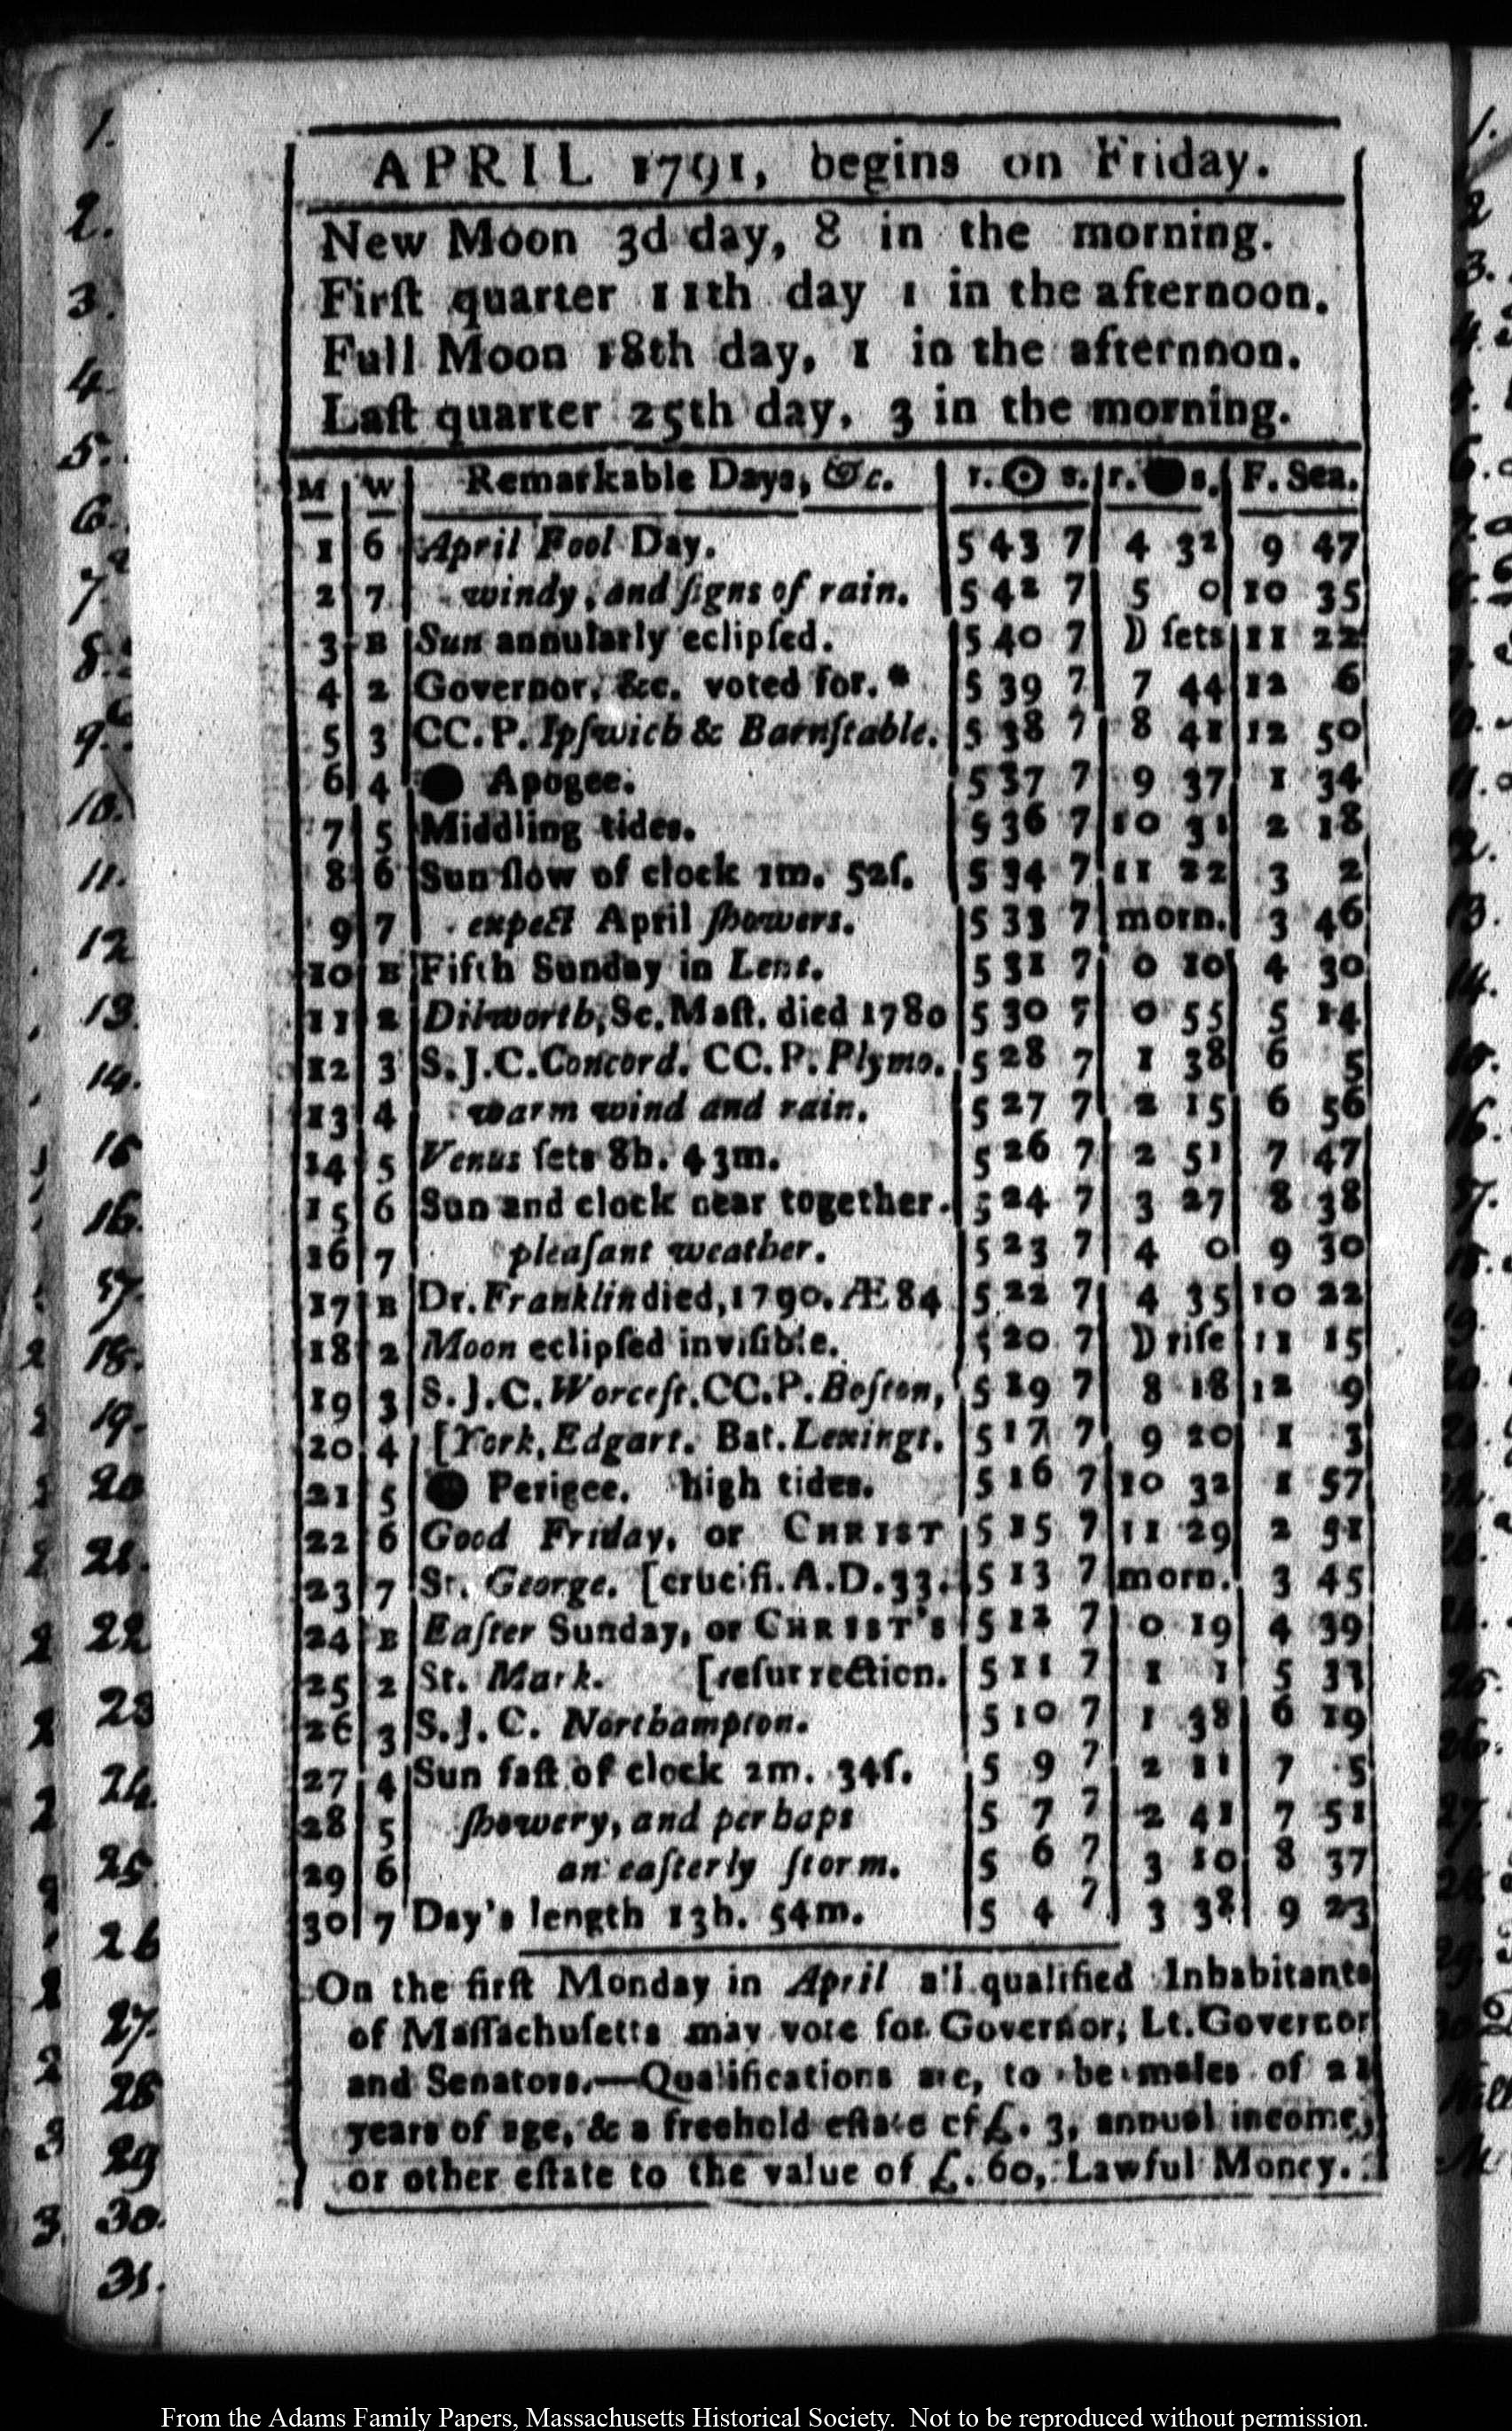 APRIL 1791, begins on Friday.
New Moon 3d day, 8 in the morning.
Firſt quarter 11th day 1 in the afternoon.
Full Moon 18th day, 1 in the afternnon.
Laſt quarter 25th day, 3 in the morning.
M W Remarkable Days, &c. r. ☉ s. r. ● s. F. Sea.
1 6 April Fool Day. 5 43 7 4 32 9 47
2 7 windy, and ſigns of rain. 5 42 7 5 0 10 35
3 B Sun annularly eclipſed. 5 40 7 ☽ ſets 11 22
4 2 Governor, &c. voted for.* 5 39 7 7 44 12 6
5 3 CC.P. Ipſwich & Barnſtable. 5 38 7 8 41 12 50
6 4 ● Apogee. 5 37 7 9 37 1 34
7 5 Middling tides. 5 36 7 10 31 2 18
8 6 Sun ſlow of clock 1m. 52ſ. 5 34 7 11 22 3 2
9 7 expect April ſhowers. 5 33 7 morn. 3 46
10 B Fifth Sunday in Lent. 5 31 7 0 10 4 30
11 2 Dilworth, Sc. Maſt. died 1780 5 30 7 0 55 5 14
12 3 S.J.C. Concord. CC.P. Plymo. 5 28 7 1 38 6 5
13 4 warm wind and rain. 5 27 7 2 15 6 56
14 5 Venus ſets 8h. 43m. 5 26 7 2 51 7 47
15 6 Sun and clock near together. 5 24 7 3 27 8 38
16 7 pleaſant weather. 5 23 7 4 0 9 30
17 B Dr. Franklin died, 1790. Æ 84 5 22 7 4 35 10 22
18 2 Moon eclipſed inviſible. 5 20 7 ☽ riſe 11 15
19 3 S.J.C. Worceſt. CC.P. Boſton, 5 19 7 8 18 12 9
20 4 [York, Edgart. Bat. Lexingt. 5 17 7 9 20 1 3
21 5 ● Perigee. high tides. 5 16 7 10 32 1 57
22 6 Good Friday, or CHRIST 5 15 7 11 29 2 51
23 7 St. George. [crucifi. A.D. 33. 5 13 7 morn. 3 45
24 B Eaſter Sunday, or CHRIST's 5 12 7 0 19 4 39
25 2 St. Mark. [reſurrection. 5 11 7 1 1 5 33
26 3 S.J.C. Northampton. 5 10 7 1 38 6 19
27 4 Sun faſt of clock 2m. 34ſ. 5 9 7 2 11 7 5
28 5 ſhowery, and perhaps 5 7 7 2 41 7 51
29 6 an eaſterly ſtorm. 5 6 7 3 10 8 37
30 7 Day's length 13h. 54m. 5 4 7 3 38 9 23
On the firſt Monday in April all qualified Inhabitants
of Maſſachuſetts may vote for Governor, Lt. Governor
and Senators.—Qualifications are, to be males of 21
years of age, & a freehold eſtate of £. 3, annual income,
or other eſtate to the value of £. 60, Lawful Money.
1.
2.
3.
4.
5.
6.
7.
8.
9.
10.
11.
12
13.
14.
15
16.
17.
18.
19.
20
21.
22
23
24.
25
26
27.
28
29
30.
31.
From the Adams Family Papers, Massachusetts Historical Society. Not to be reproduced without permission.